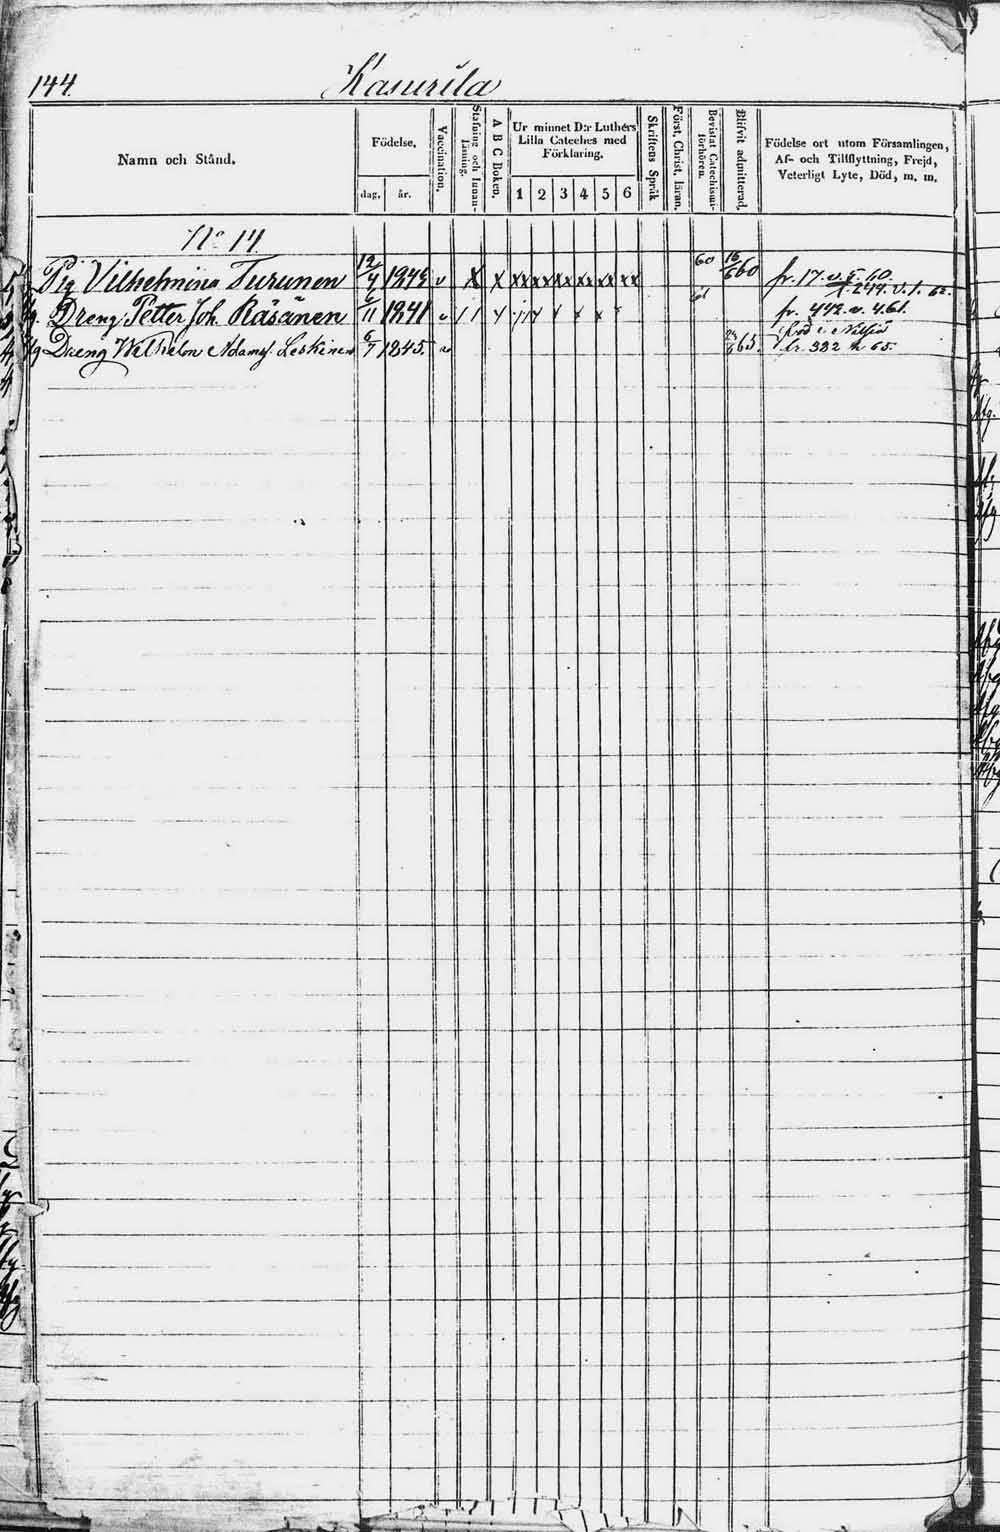 144.
Kasurila
Namn och Stånd.
Födelse,
dag,
år.
Vaccination.
Stafning och Innan-
läsning.
A B C Boken.
Ur minnet D:r Luthers
Lilla Cateches med
Förklaring.
1 2 3 4 5 6
Skriftens Språk
Först. Christ. läran.
Bevistat Catechismi-
förhören.
Blifvit admitterad.
Födelse ort utom Församlingen,
Af- och Tillflyttning, Frejd,
Veterligt Lyte, Död, m. m.
No 14
Pig Vilhelmina Turunen 12/4 v X X xx xx xx xx xx xx 60 16/6 60 fr. 17. v. 5. 60.
t. 249. v. 1.
Dreng Petter Joh. Räsänen 6/11 1841 v 61 fr. 442. v. 461.
Dreng Wilhelm Adamsf Leskinen 6/7 1845. v 65. född i Nilsiä
fr. 332 65.